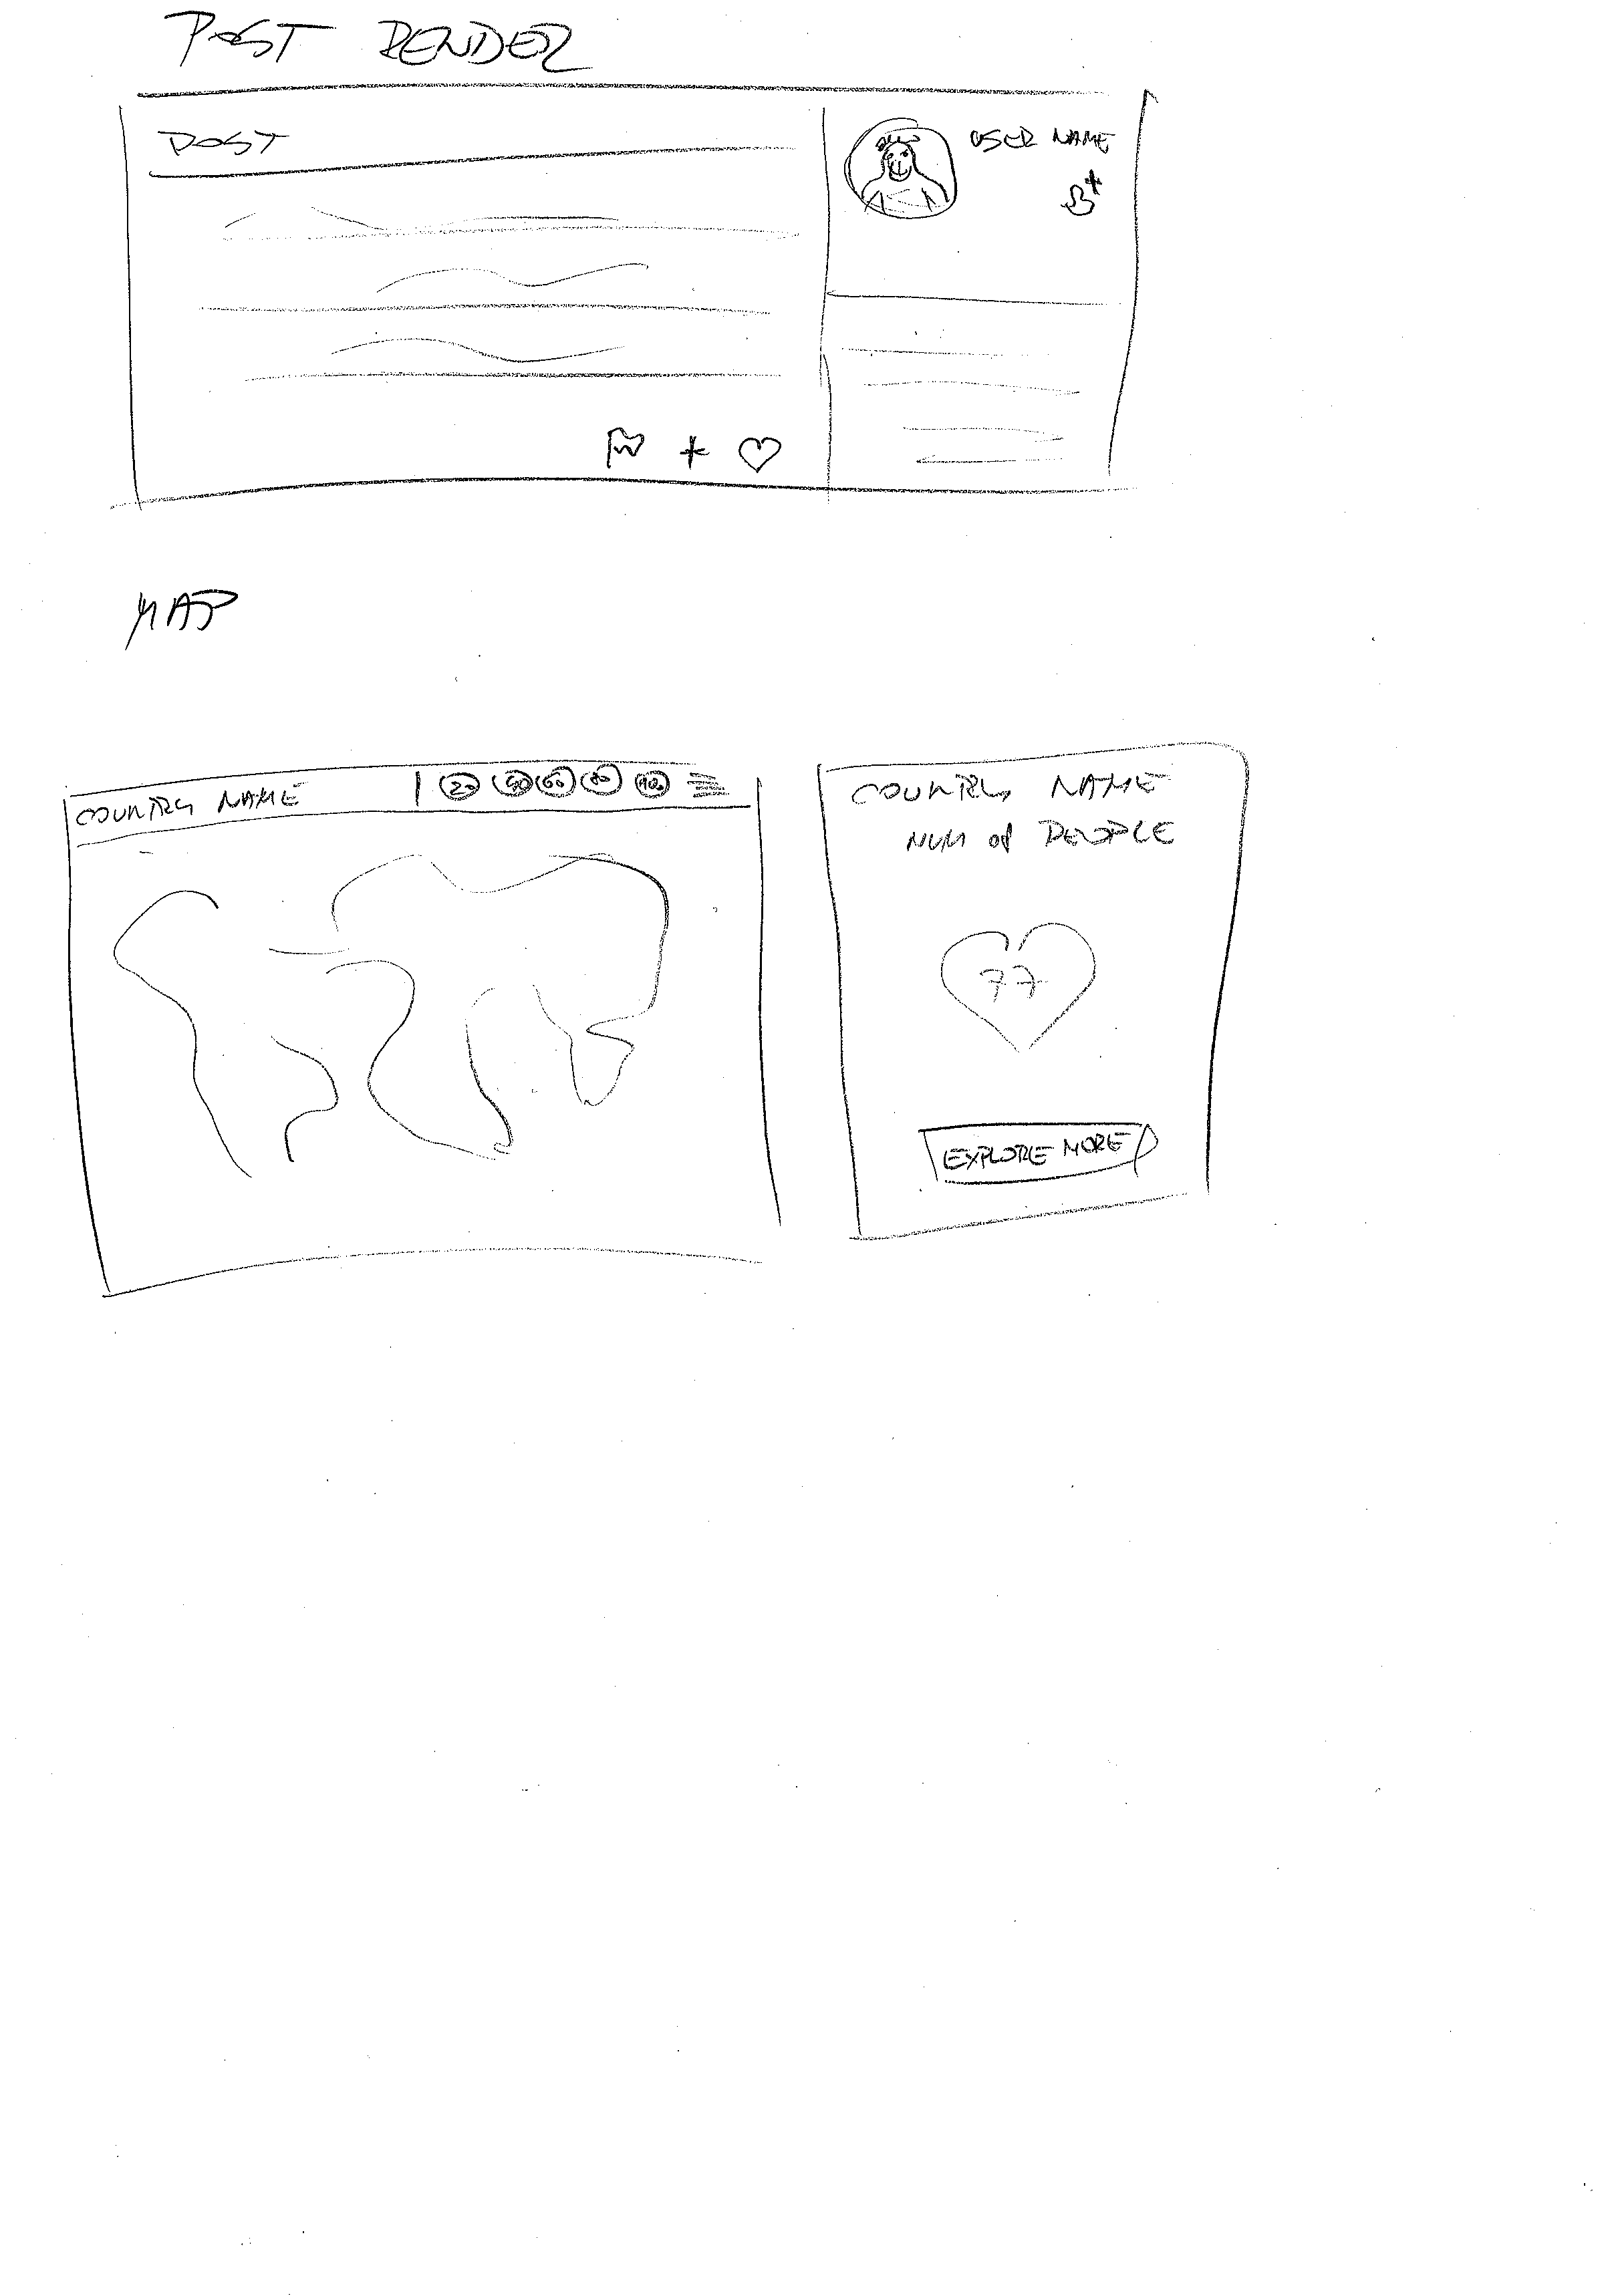 POST RENDER
POST
USER NAME
MAP
COUNTRY NAME 20 60 80
COUNTRY NAME
NUM of PEOPLE
77
EXPLORE MORE